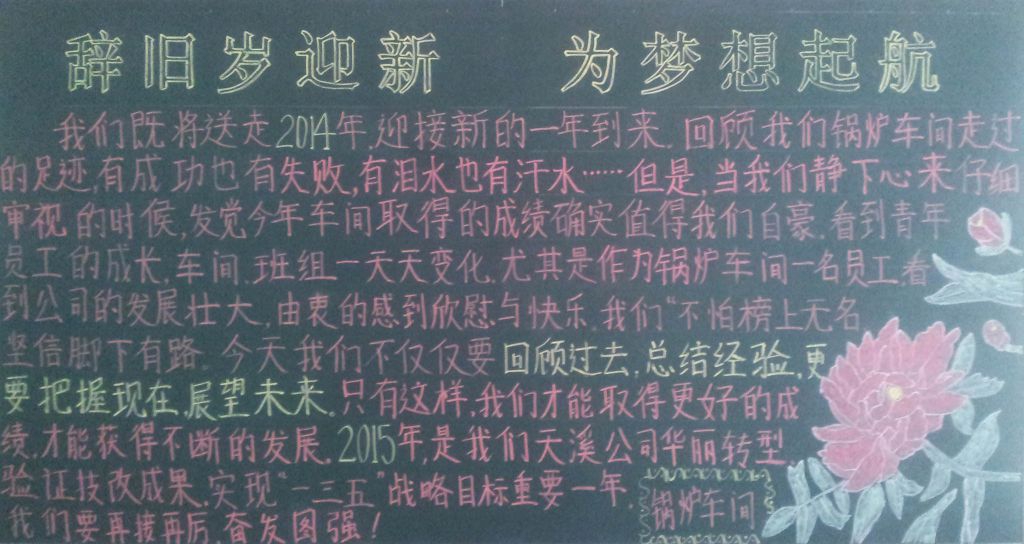 辞旧岁迎新 为梦想起航
我们既将送走2014年,迎接新的一年到来.回顾我们锅炉车间走过
的足迹,有成功也有失败,有泪水也有汗水……但是,当我们静下心来仔细
审视的时候,发觉今年车间取得的成绩确实值得我们自豪.看到青年
员工的成长,车间.班组一天天变化.尤其是作为锅炉车间一名员工,看
到公司的发展壮大,由衷的感到欣慰与快乐.我们“不怕榜上无名
坚信脚下有路.今天我们不仅仅要回顾过去,总结经验,更
要把握现在,展望未来.只有这样,我们才能取得更好的成
绩,才能获得不断的发展.2015年,是我们天溪公司华丽转型
验证技改成果,实现“一三五”战略目标重要一年,
我们要再接再厉,奋发图强!
锅炉车间